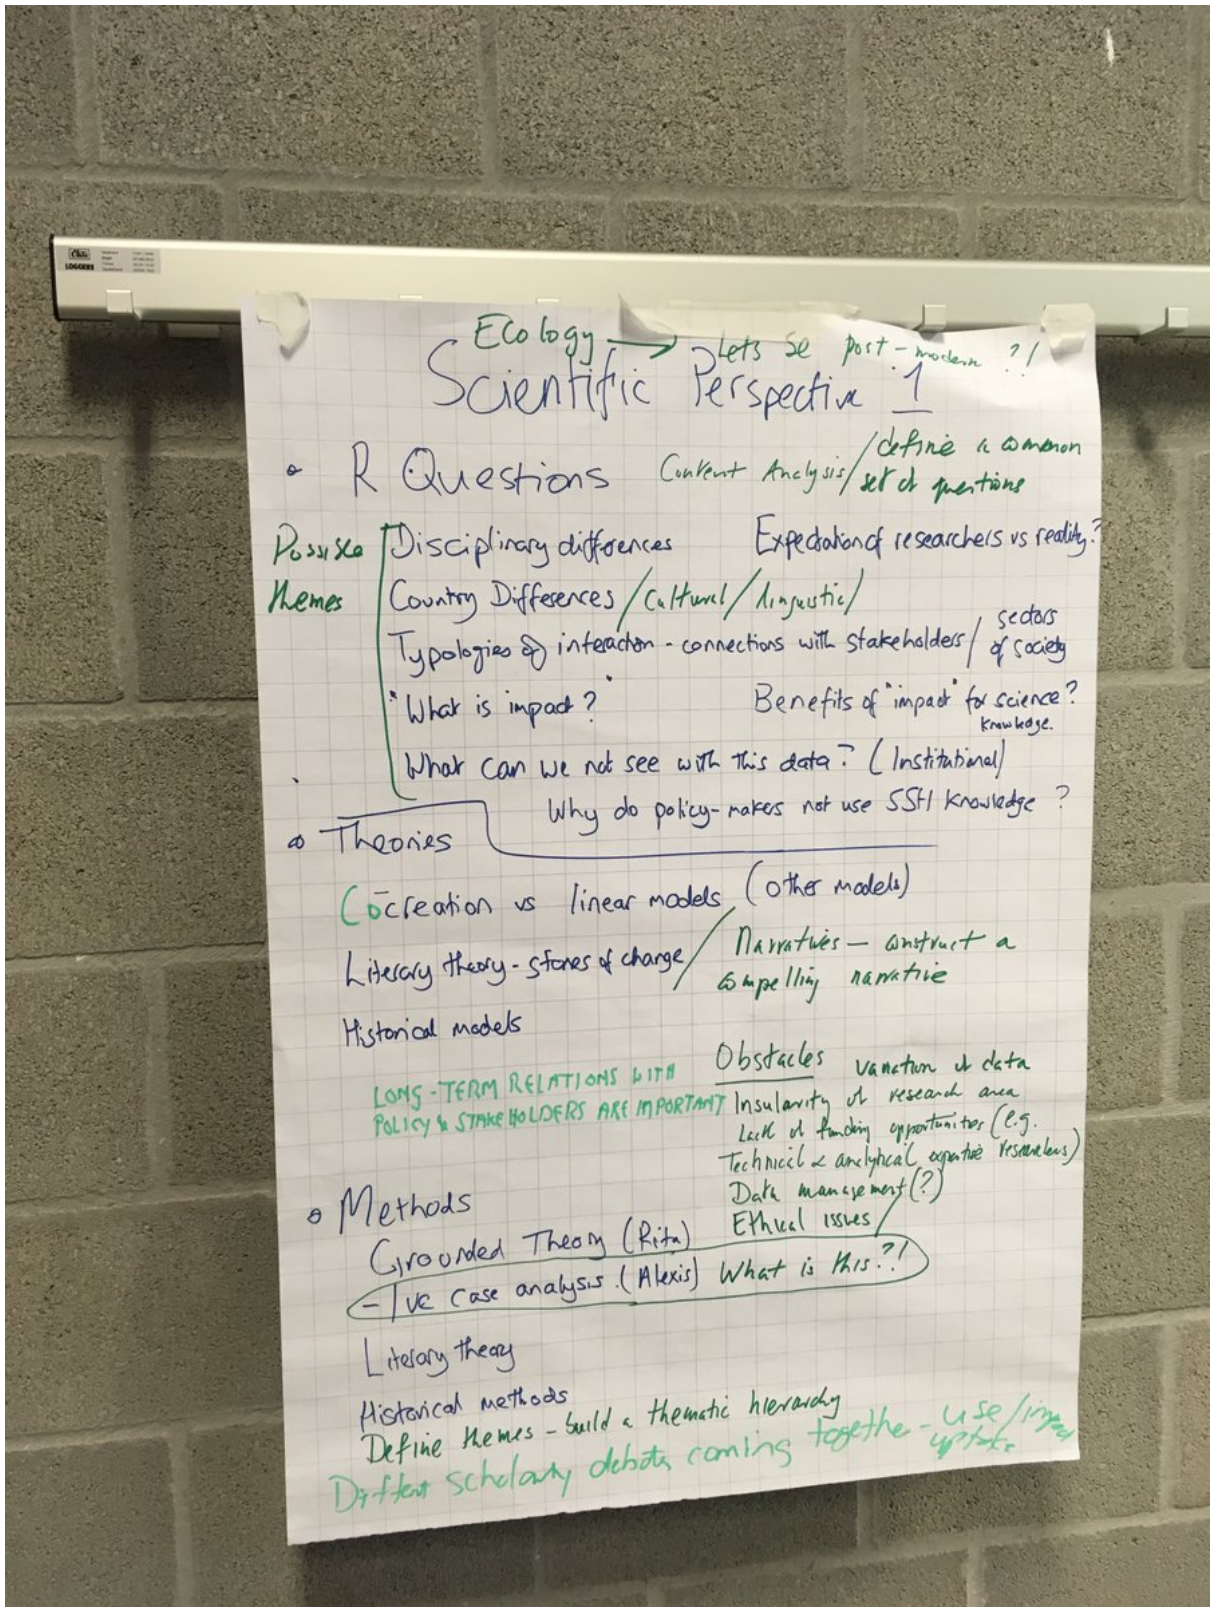 Clic
LOGGERS
Ecology → Lets be post-modern ?!
Scientific Perspective 1
R Questions
Content Analysis / define a common
set of questions
Possible
themes
Disciplinary differences
Expectation of researchers vs reality?
Country Differences / Cultural / linguistic /
Typologies of interaction - connections with stakeholders / sectors
of society
"What is impact?"
Benefits of "impact" for science?
knowledge.
What can we not see with this data? (Institutional)
Why do policy-makers not use SSH knowledge ?
Theories
Co-creation vs linear models (other models)
Literary theory - stories of change / Narratives — construct a
compelling narrative
Historical models
LONG-TERM RELATIONS WITH
POLICY & STAKEHOLDERS ARE IMPORTANT
Obstacles
variation of data
Insularity of research area
Lack of funding opportunities (e.g.
Technical & analytical expertise researchers)
Data management (?)
Ethical issues /
Methods
Grounded Theory (Rita)
-/ve case analysis. (Alexis) What is this?!
Literary theory
Historical methods
Define themes - build a thematic hierarchy
Different scholarly debates coming together - use / impact
uptake